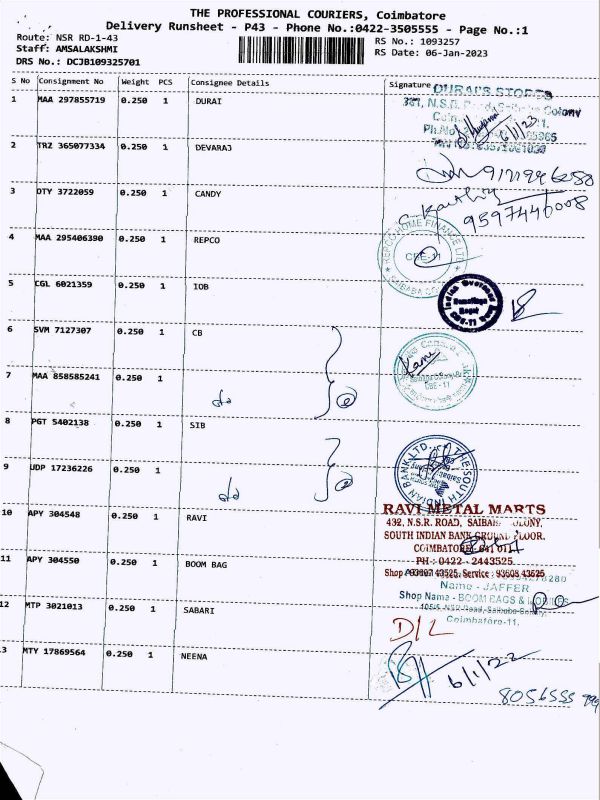 THE PROFESSIONAL COURIERS, Coimbatore
Delivery Runsheet - P43 - Phone No.:0422-3505555 - Page No.:1
Route: NSR RD-1-43
RS No.: 1093257
Staff: AMSALAKSHMI
RS Date: 06-Jan-2023
DRS No.: DCJB109325701
S No Consignment No Weight PCS Consignee Details Signature
1 MAA 297855719 0.250 1 DURAI
DURAI'S STORES
381, N.S.R. Road, Saibaba Colony
6/1/23
2 TRZ 365077334 0.250 1 DEVARAJ
3 DTY 3722059 0.250 1 CANDY
Karthi
9597446008
4 MAA 295406390 0.250 1 REPCO
REPCO HOME FINANCE LTD
CBE-11
5 CGL 6021359 0.250 1 IOB
Indian Overseas Bank
CBE-11
6 SVM 7127307 0.250 1 CB
②
CBE-11
7 MAA 858585241 0.250 1 do
8 PGT 5402138 0.250 1 SIB
②
THE SOUTH INDIAN BANK LTD.
9 UDP 17236226 0.250 1 do
10 APY 304548 0.250 1 RAVI
RAVI METAL MARTS
432, N.S.R. ROAD, SAIBABA COLONY,
SOUTH INDIAN BANK GROUND FLOOR,
COIMBATORE - 641 011.
PH : 0422 - 2443525.
Shop : 93607 43525, Service : 93608 43525
11 APY 304550 0.250 1 BOOM BAG
Name - JAFFER
Shop Name - BOOM BAGS & MOBILES
105/5, NSR Road, Saibaba Colony,
Coimbatore-11.
12 MTP 3021013 0.250 1 SABARI
D/L
3 MTY 17869564 0.250 1 NEENA
6/1/22
8056555 999